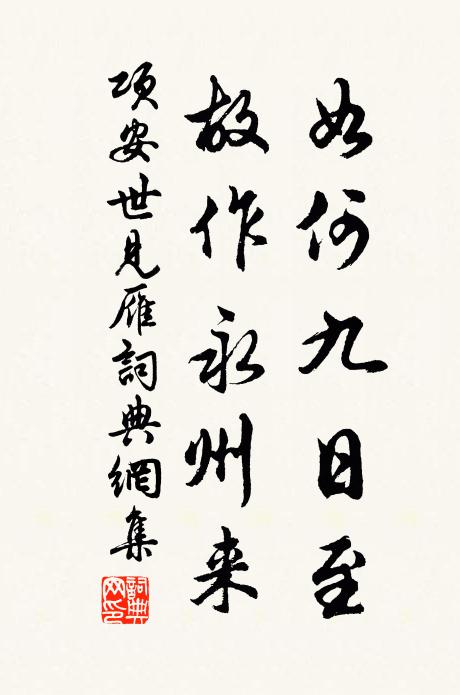 如何九日至
故作永州来
项安世見雁詞典網集
詞典网印